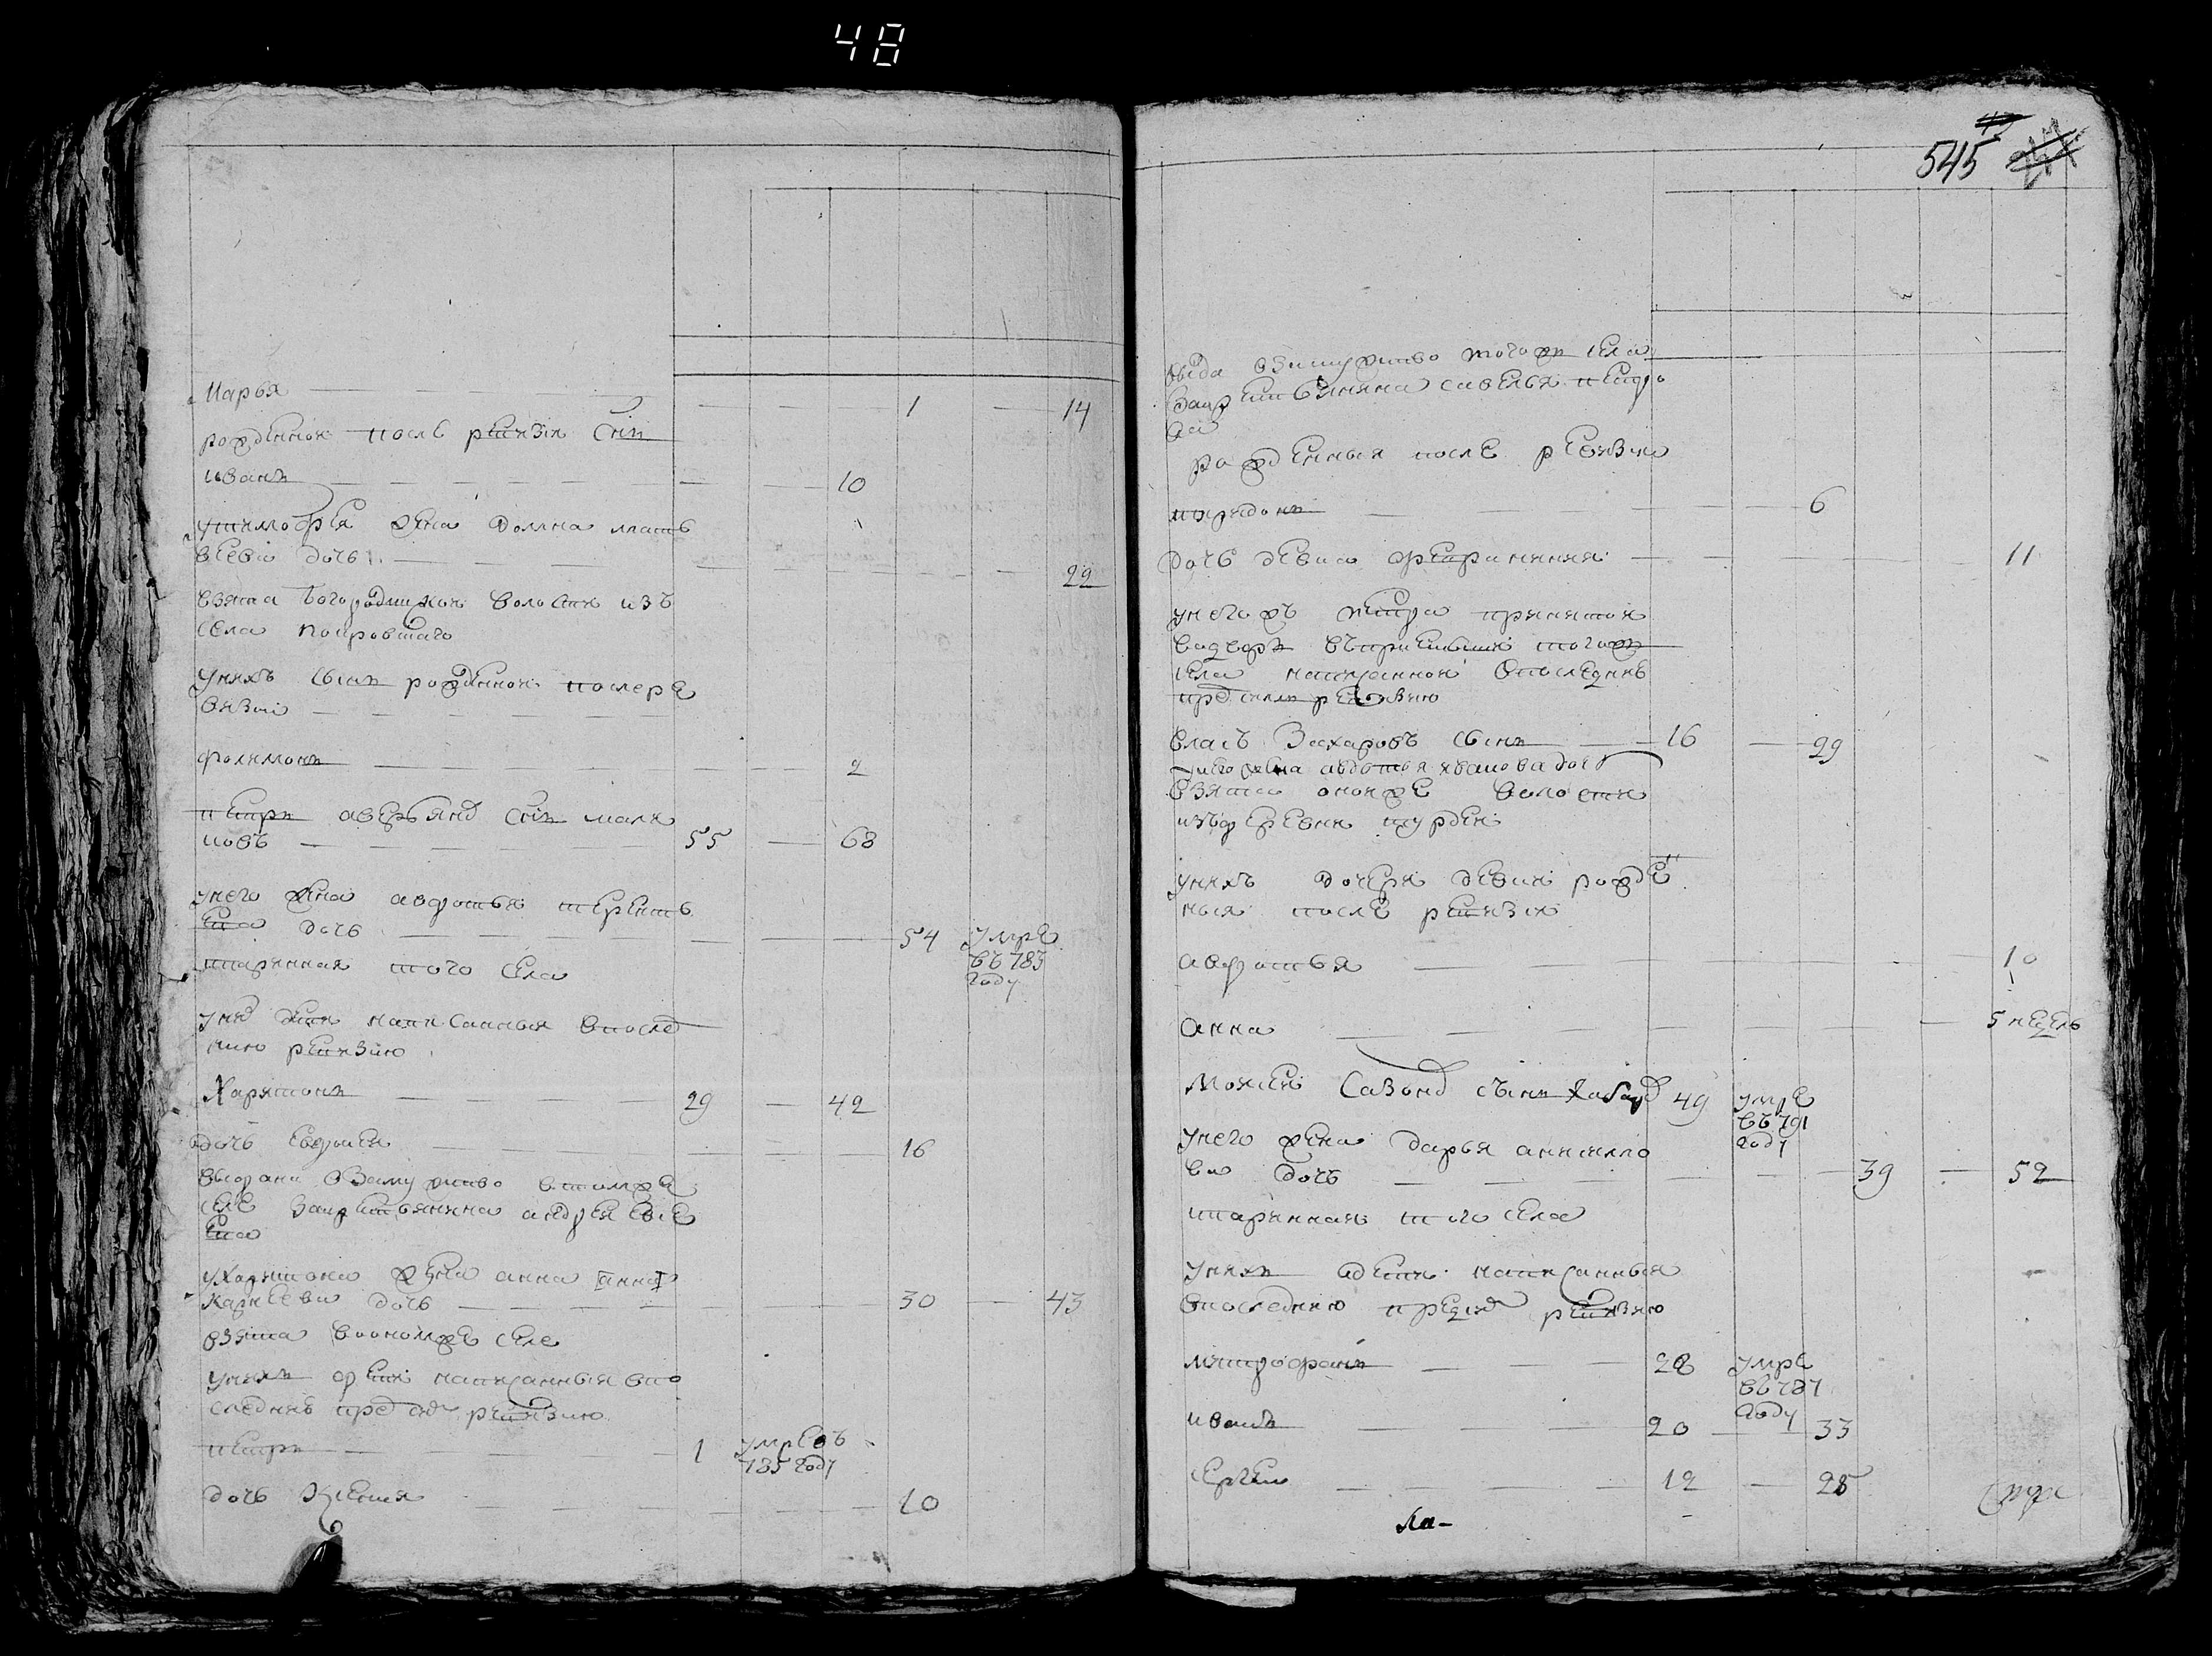 48
Марья — 1 — 14
рожденной после ревизіи снъ
иванъ — 10
утимофея жена домна матв
веева дочь — 22
взята богородицкой волости изъ
села покровшаго
унихъ сынъ рожденной послере
визіи —
филимонъ — 2
петръ аверьяно снъ маля
новъ — 55 — 68
унего жена авдотья терентъ
ева дочь — 54 умре
въ 783
году
старинная того села
унихъ дети написанныя впослед
нию ревизию
Харитонъ — 29 — 42
дочь евдокея — 16
выдана Взамужство втомже
селе Закрестьянина андрея евсе
ева
ухаритона жена анна [анна]
карнеева дочь — 30 — 43
взята вономже селе
унихъ дети написанныя впо
следнею пред сею ревизию
петръ — 1 умревъ
785 году
дочь Ксения — 10
545
выда взамужство тогожъ села
закрестьянина савелья петро
ва
рожденныя после ревизии
спиридонъ — 6
дочь девка — 11
унегожъ петра принятой
вадворъ тогожъ
села написанной впоследнею
пред сим ревизию
власъ Захаровъ сынъ — 16 — 29
унего жена авдотья иванова дочь
взята оной же волости
издеревни
унихъ дочери девки рожде
ныя после ревизіи
авдотья — 10
анна — 5 недель
Мокей Сазоно сынъ Хабаро 49 умре
въ 791
году
унего жена дарья
ва дочь — 39 — 52
старинная того села
унихъ дети написанныя
впоследнию предсию ревизию
митрофанъ — 28 умре
въ 787
году
иванъ — 20 — 33
сергей — 12 — 25
Ла-